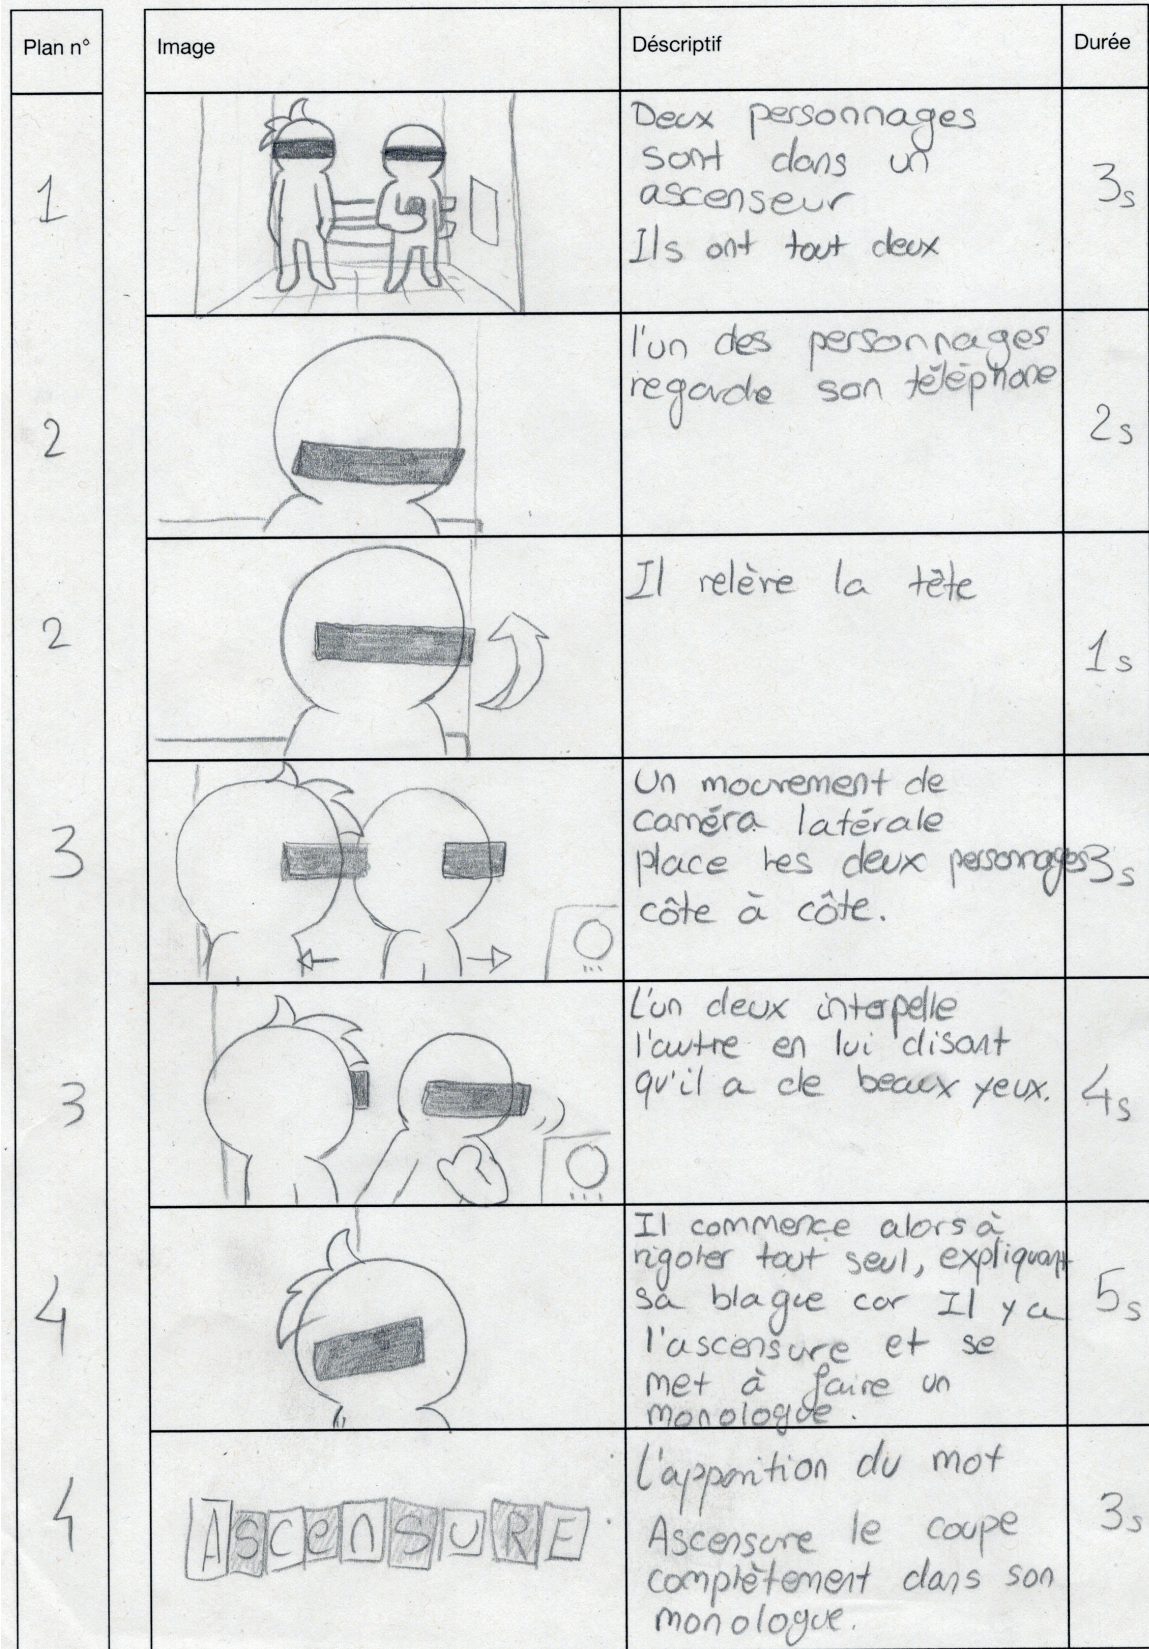 Plan n°
Image
Déscriptif
Durée
1
Deux personnages
sont dans un
ascenseur
Ils ont tout deux
3s
2
l'un des personnages
regarde son téléphone
2s
2
Il relève la tête
1s
3
Un mouvement de
caméra latérale
place les deux personnages
côte à côte.
3s
3
L'un deux interpelle
l'autre en lui disant
qu'il a de beaux yeux.
4s
4
Il commence alors à
rigoler tout seul, expliquant
sa blague car Il y a
l'ascensure et se
met à faire un
monologue.
5s
4
ASCENSURE
L'apparition du mot
Ascensure le coupe
complètement dans son
monologue.
3s